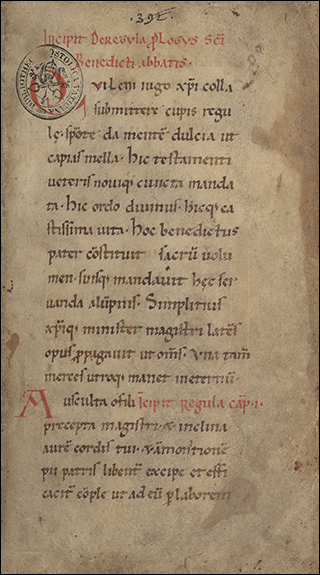 .392.
Incipit De Regula, p̄logus Sc̄i
Benedicti abbatis.
Qvi leni iugo xp̄i colla
submittere cupis regu
le. spōte da mentē dulcia ut
capias mella. hic testamenti
ueteris nouiq; cuncta manda
ta. hic ordo diuinus. hicq; ca
stissima uita. hoc benedictus
pater cōstituit sacrū uolu
men. suisq; mandauit hęc ser
uanda alūpnis. Simplitius
xp̄iq; minister magistri latēs
opus p̄pagauit ut om̄s. una tam̄
merces utroq; manet in eternū.
Ausculta o fili Incipit regula cap̄.i.
precepta magistri. & inclina
aurē cordis tui. & āmonitionē
pii patris libent̄ excipe et effi
cacit̄ cōple ut ad eū p̄ laborem